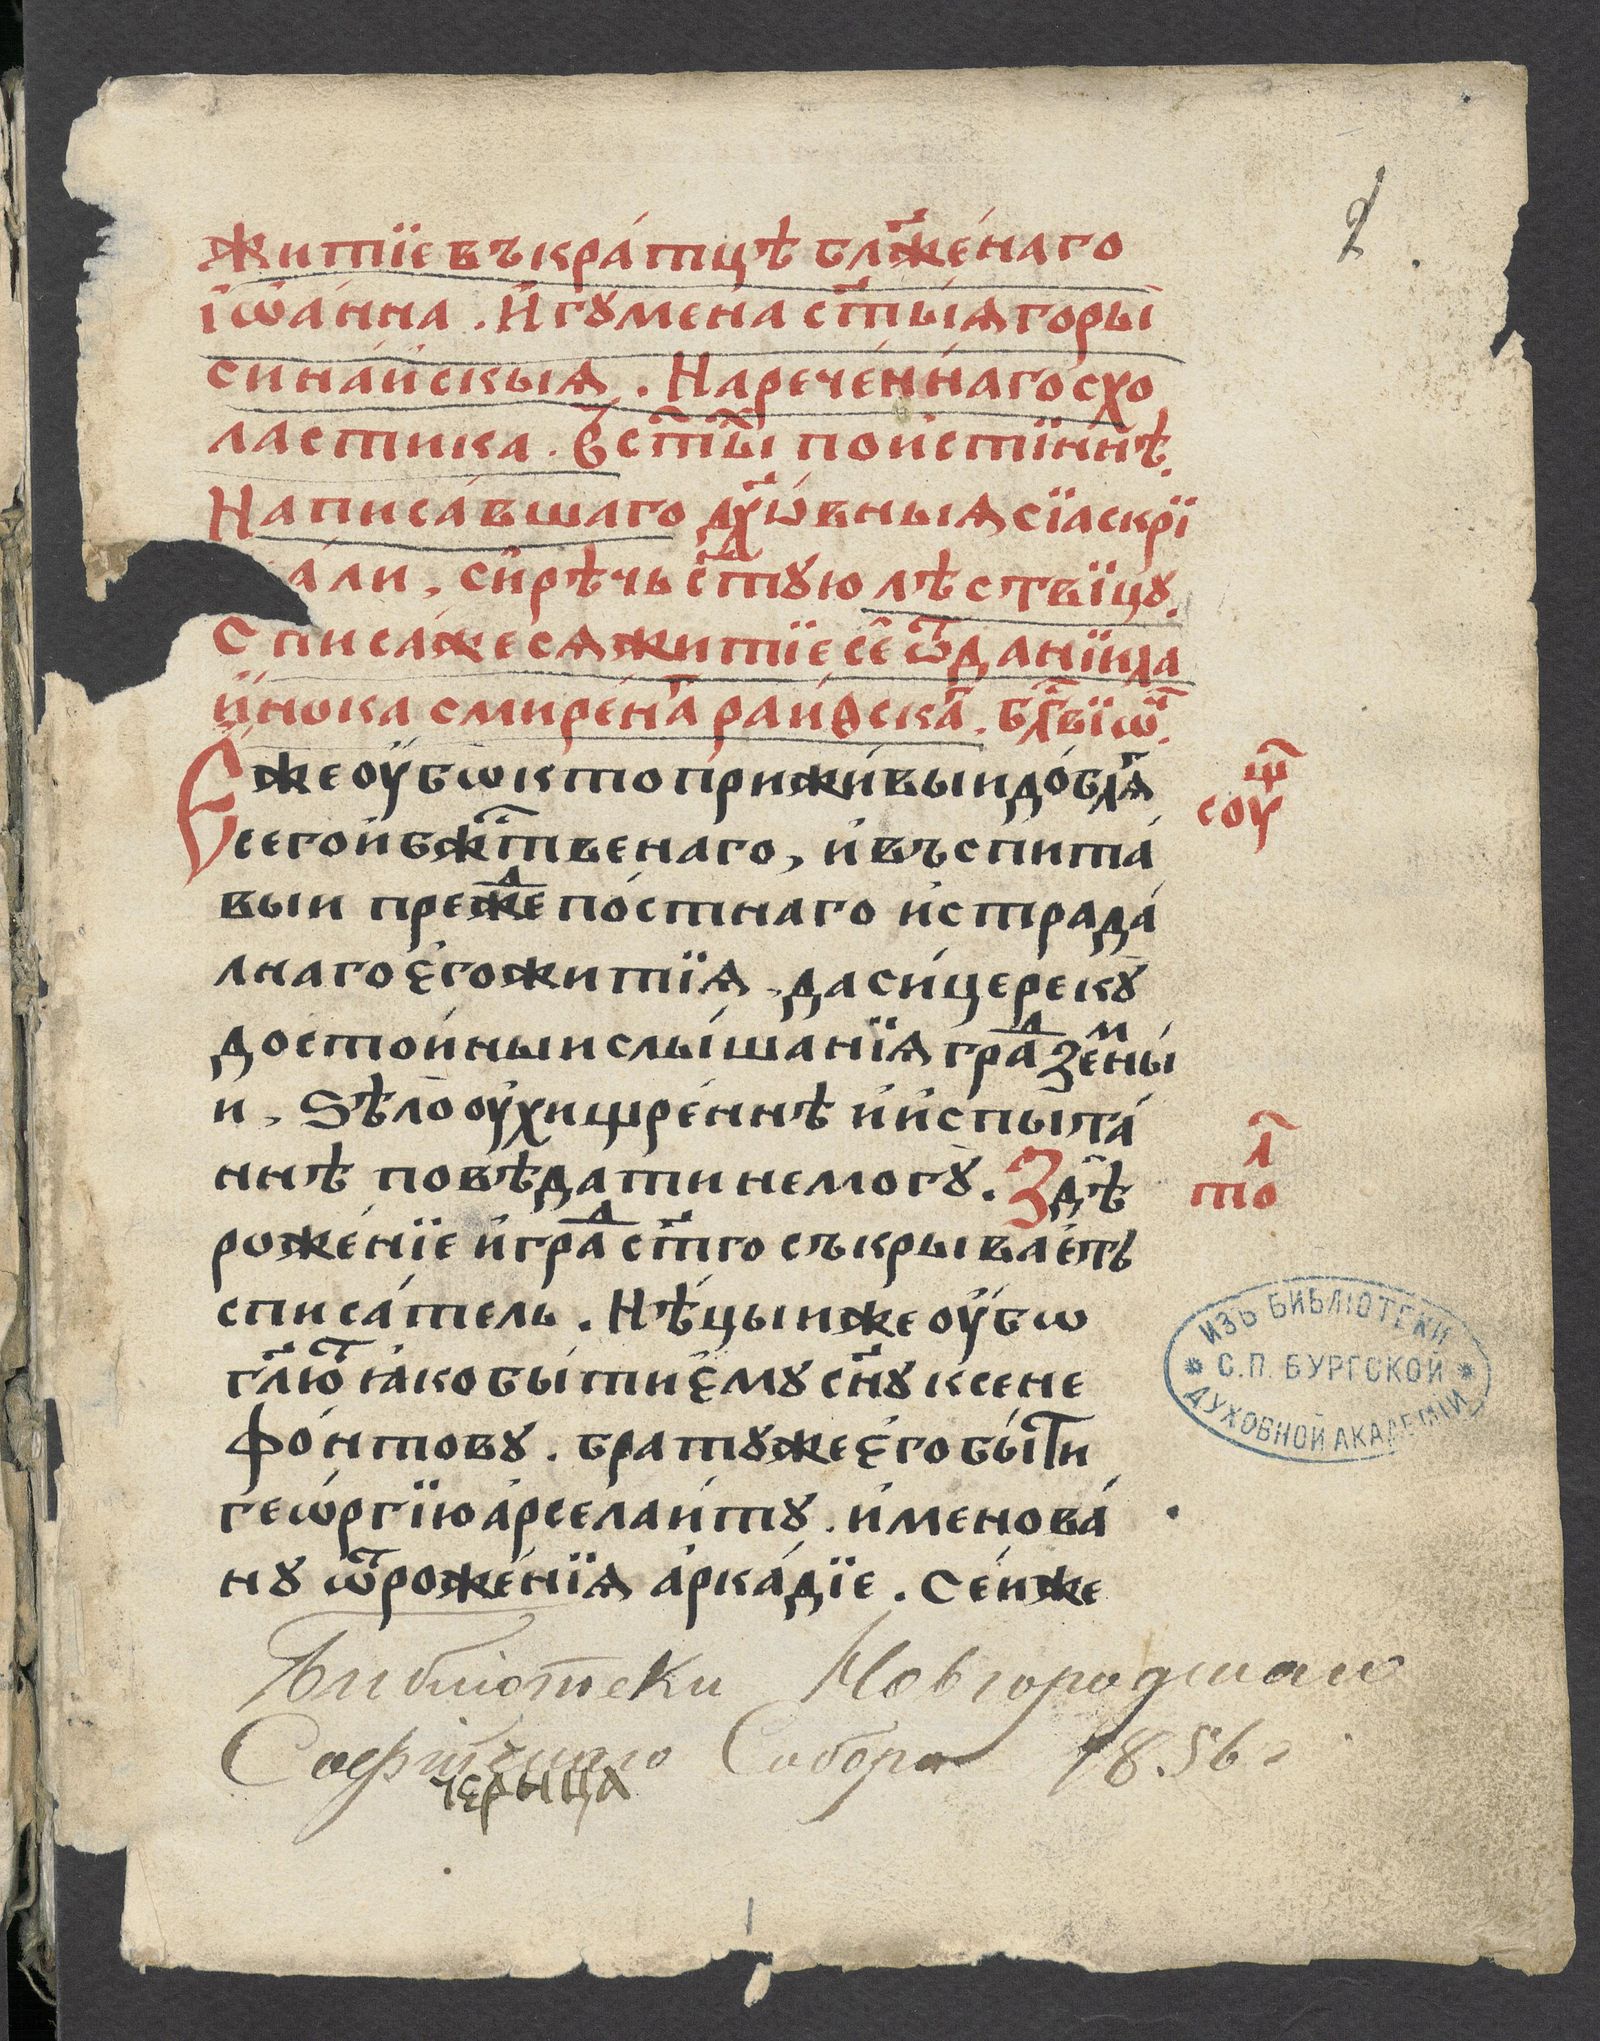 2
житїе въкра́тцѣ бл҃же́наго
і҆ѡа́нна . И҆гꙋмена ст҃ы́ѧ горы̀
сина́искыѧ . Нарече́ннаго схо
ластика . В ст҃ы́ по и҆стїннѣ.
Написа́вшаго дх҃ѡ́вныѧ сїа скрї
али , си́рѣчь ст҃ꙋю лѣствїцꙋ.
Списа́жесѧ житїе се ѿ данїила
и҆нока смире́наг раи́ѳскаг . бл҃ви ѿ.
Еже оу҆бѡ кто прижи́выи до́блѧг
сего и҆ бж҃твенаго , и҆ въспита́
выи прежде по́стнаго и҆ страда́
лнаго є҆го житїѧ . да си́це рекꙋ̀
досто́иныи слы́шанїѧ град зе́мны
и , Ѕѣло̀ оу҆хищре́ннѣ и҆ и҆спыта́
ннѣ повѣдати не могꙋ̀ . Здѣ
роже́нїе и҆ град ст҃го съкрыва́еть
списа́тель . Нѣ́цыи же оу҆бѡ
гл҃ют ꙗ҆ко бы́ти є҆мꙋ сн҃ꙋ ксене
фо́нтовꙋ . братꙋ же є҆го бы́ти
геѡ́ргїю а҆рселаи́тꙋ . и҆менова́
нꙋ ѿ роже́нїѧ а҆рка́дїе . Се́иже
соу
то
ИЗЪ БИБЛІОТЕКИ
С.П. БУРГСКОЙ
ДУХОВНОЙ АКАДЕМІИ
Библіотеки Новгородскаго
Софійскаго Собора 1856 г.
чєрьнца